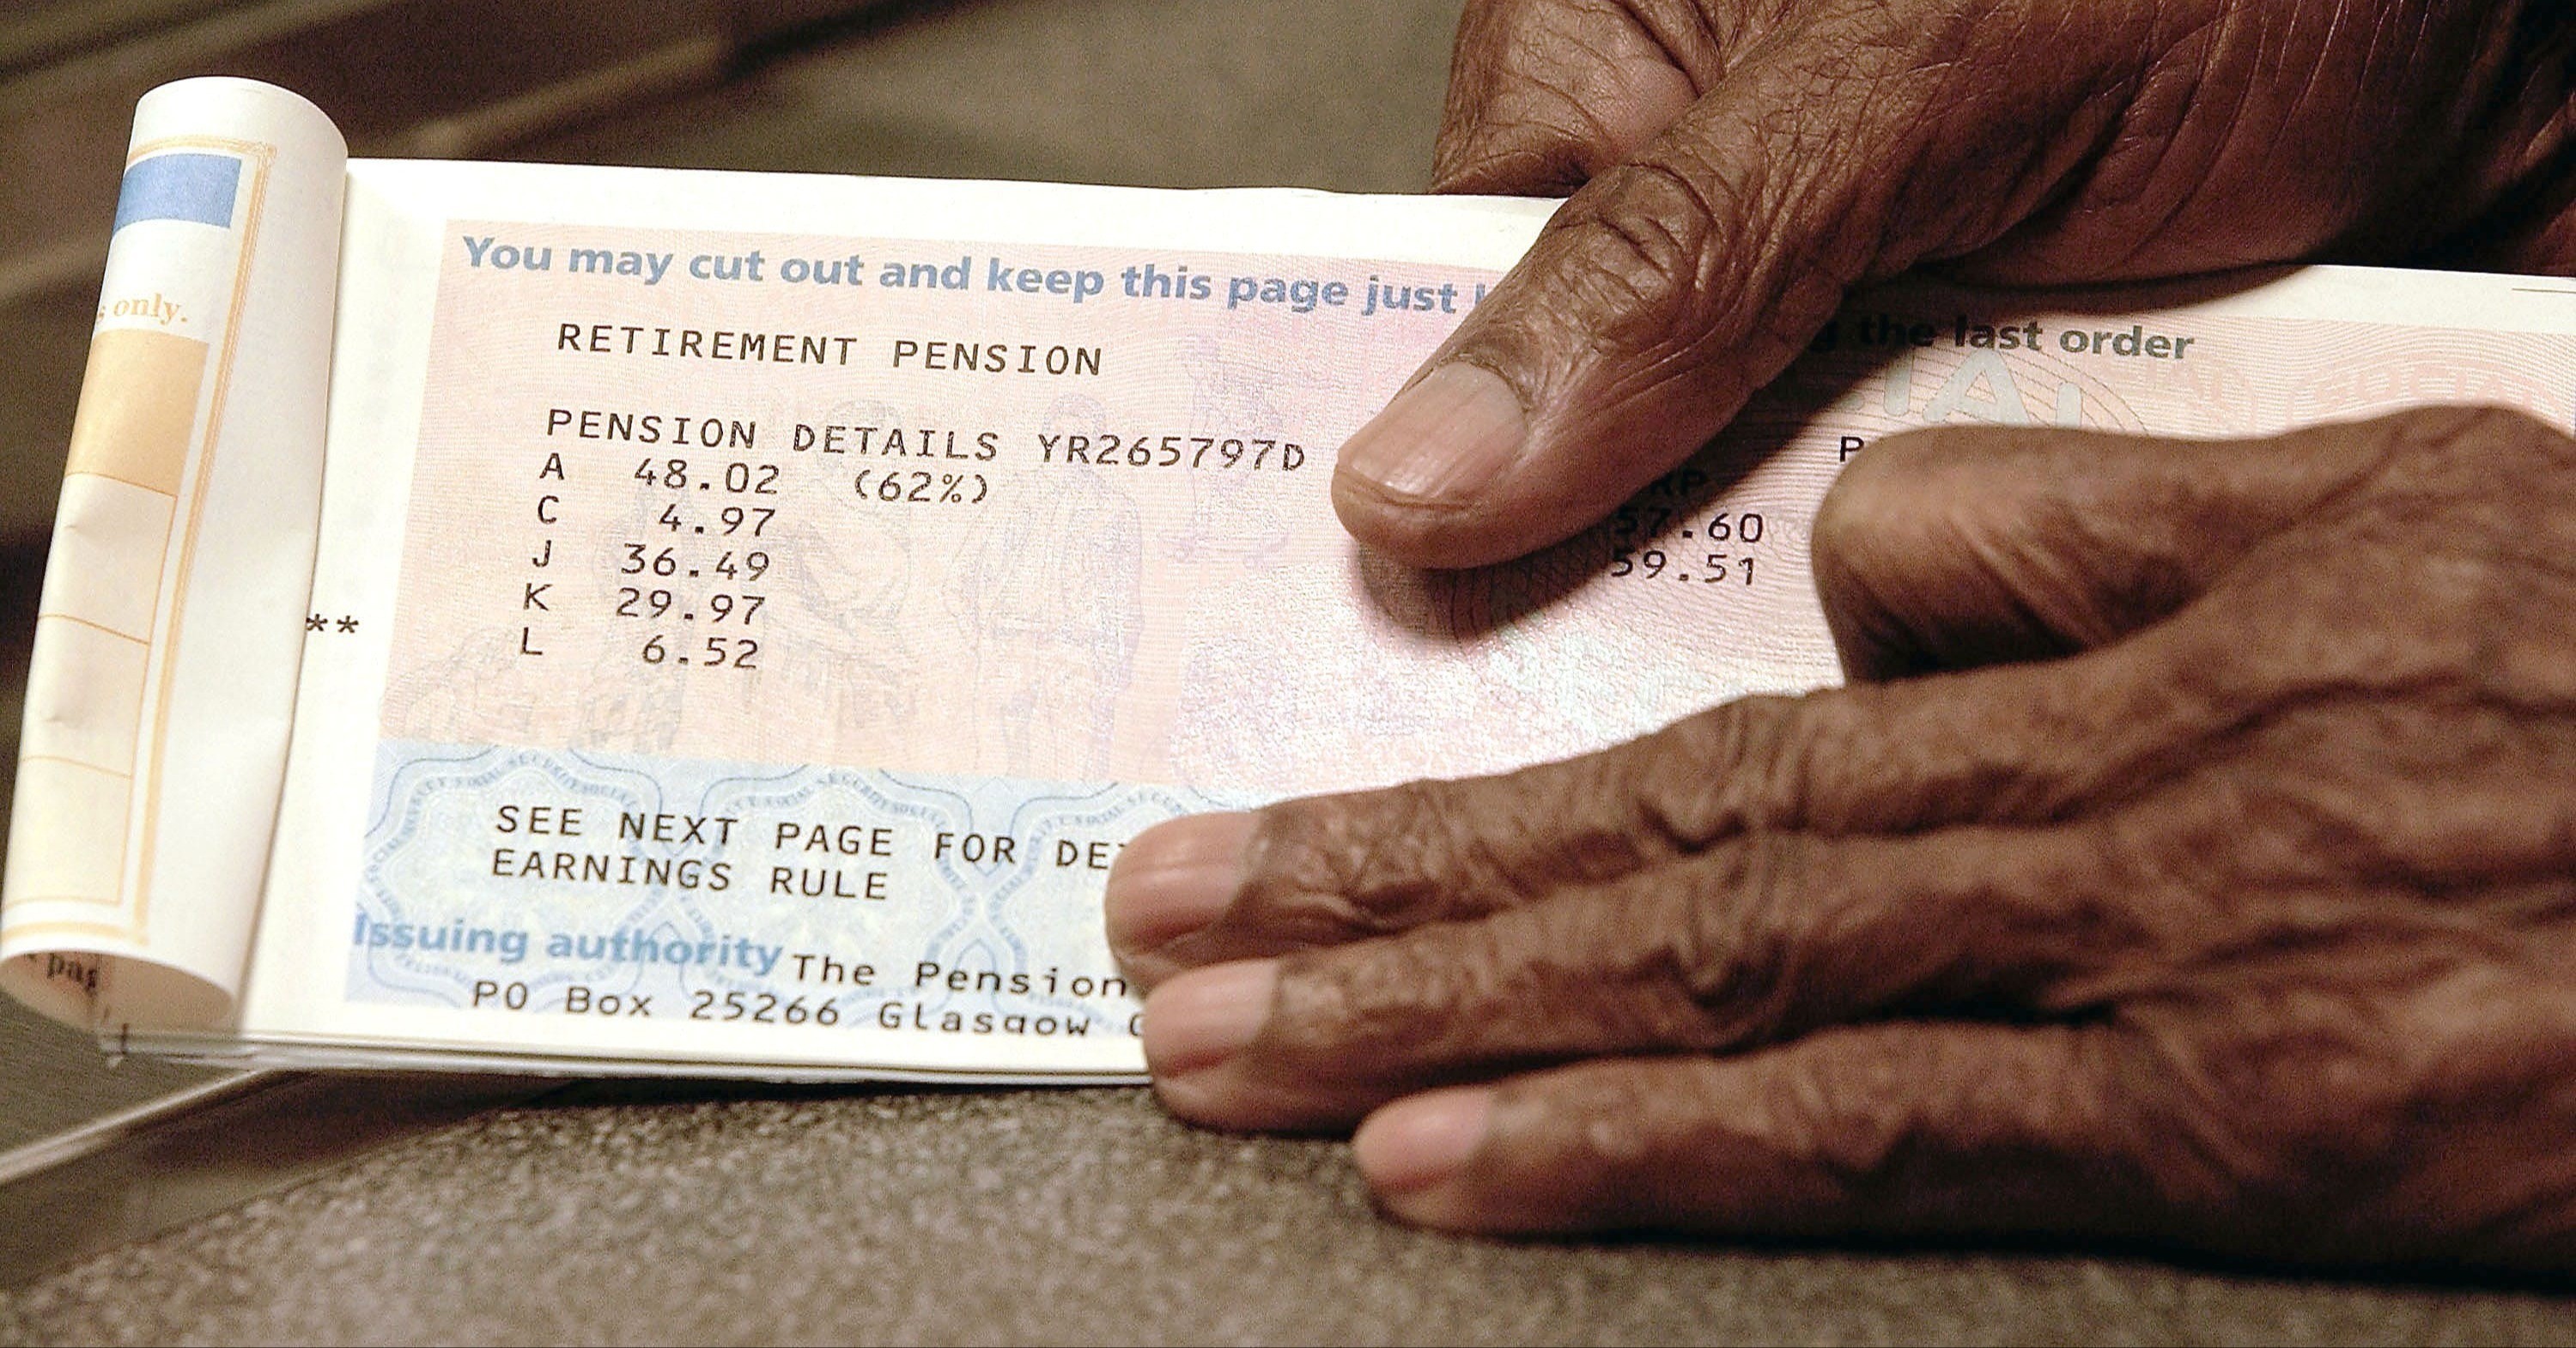 You may cut out and keep this page just
the last order
RETIREMENT PENSION
PENSION DETAILS YR265797D
A 48.02 (62%)
C 4.97
J 36.49
K 29.97
L 6.52
57.60
59.51
**
only.
SEE NEXT PAGE FOR
EARNINGS RULE
Issuing authority The Pension
PO Box 25266 Glasgow